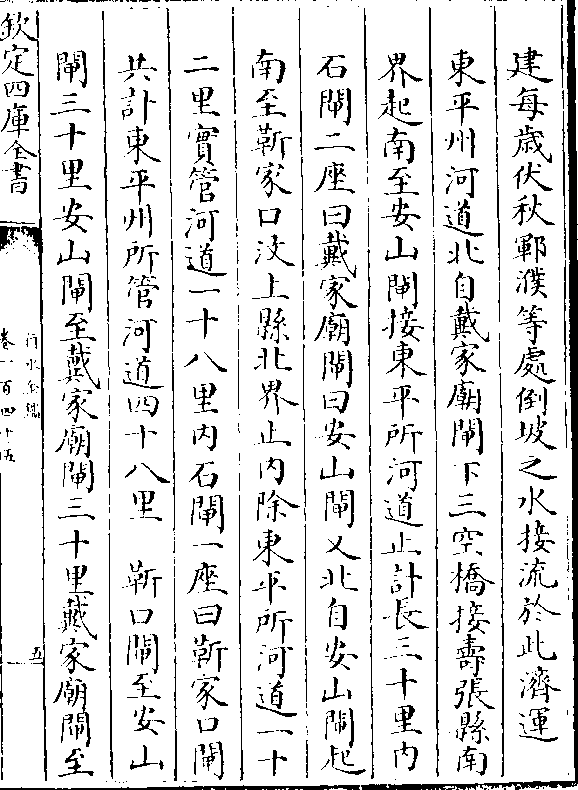 建每歲伏秋鄆濮等處倒坡之水接流於此濟運
東平州河道北自戴家廟閘下三空橋接壽張縣南
界起南至安山閘接東平所河道止計長三十里内
石閘二座曰戴家廟閘曰安山閘又北自安山閘起
南至靳家口汶上縣北界止内除東平所河道一十
二里實管河道一十八里内石閘一座曰靳家口閘
共計東平州所管河道四十八里　靳口閘至安山
閘三十里安山閘至戴家廟閘三十里戴家廟閘至
欽定四庫全書
行水金鑑
卷一百四十五
五